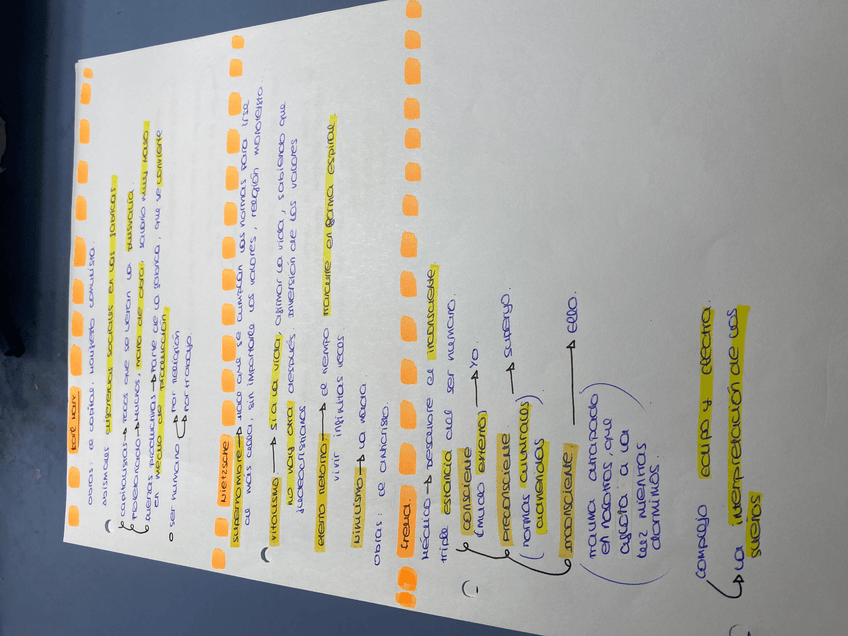 Karl Marx
obras: el capital, manifiesto comunista.
abismales diferencias sociales en las fábricas
capitalistas → pocos que se llevan la plusvalía
Proletariado → muchos, mano de obra, salario muy bajo
fuerzas productivas → parte de la fábrica, que se convierte
en medio de producción
ser humano → por religión
→ por trabajo.
Nietzsche
superhombre → hace que se cumplan las normas para irse
de más allá, sin importarle los valores, religión
vitalismo → sí a la vida, afirmar la vida, sabiendo que
no hay otra después. Inversión de los valores
judeocristianos
eterno retorno → el tiempo transcurre en forma espiral,
vivir infinitas veces
Nihilismo → la nada.
obras: el anticristo.
Freud.
Médico → Descubre el inconsciente.
triple estancia del ser humano.
consciente → Yo.
(mundo externo)
preconsciente → superyo.
(normas culturales
aprendidas)
inconsciente → ello.
(trauma atrapado
en nosotros, que
a la
luz mientras
dormimos.
complejo edipo y electra.
↳ la interpretación de los
sueños